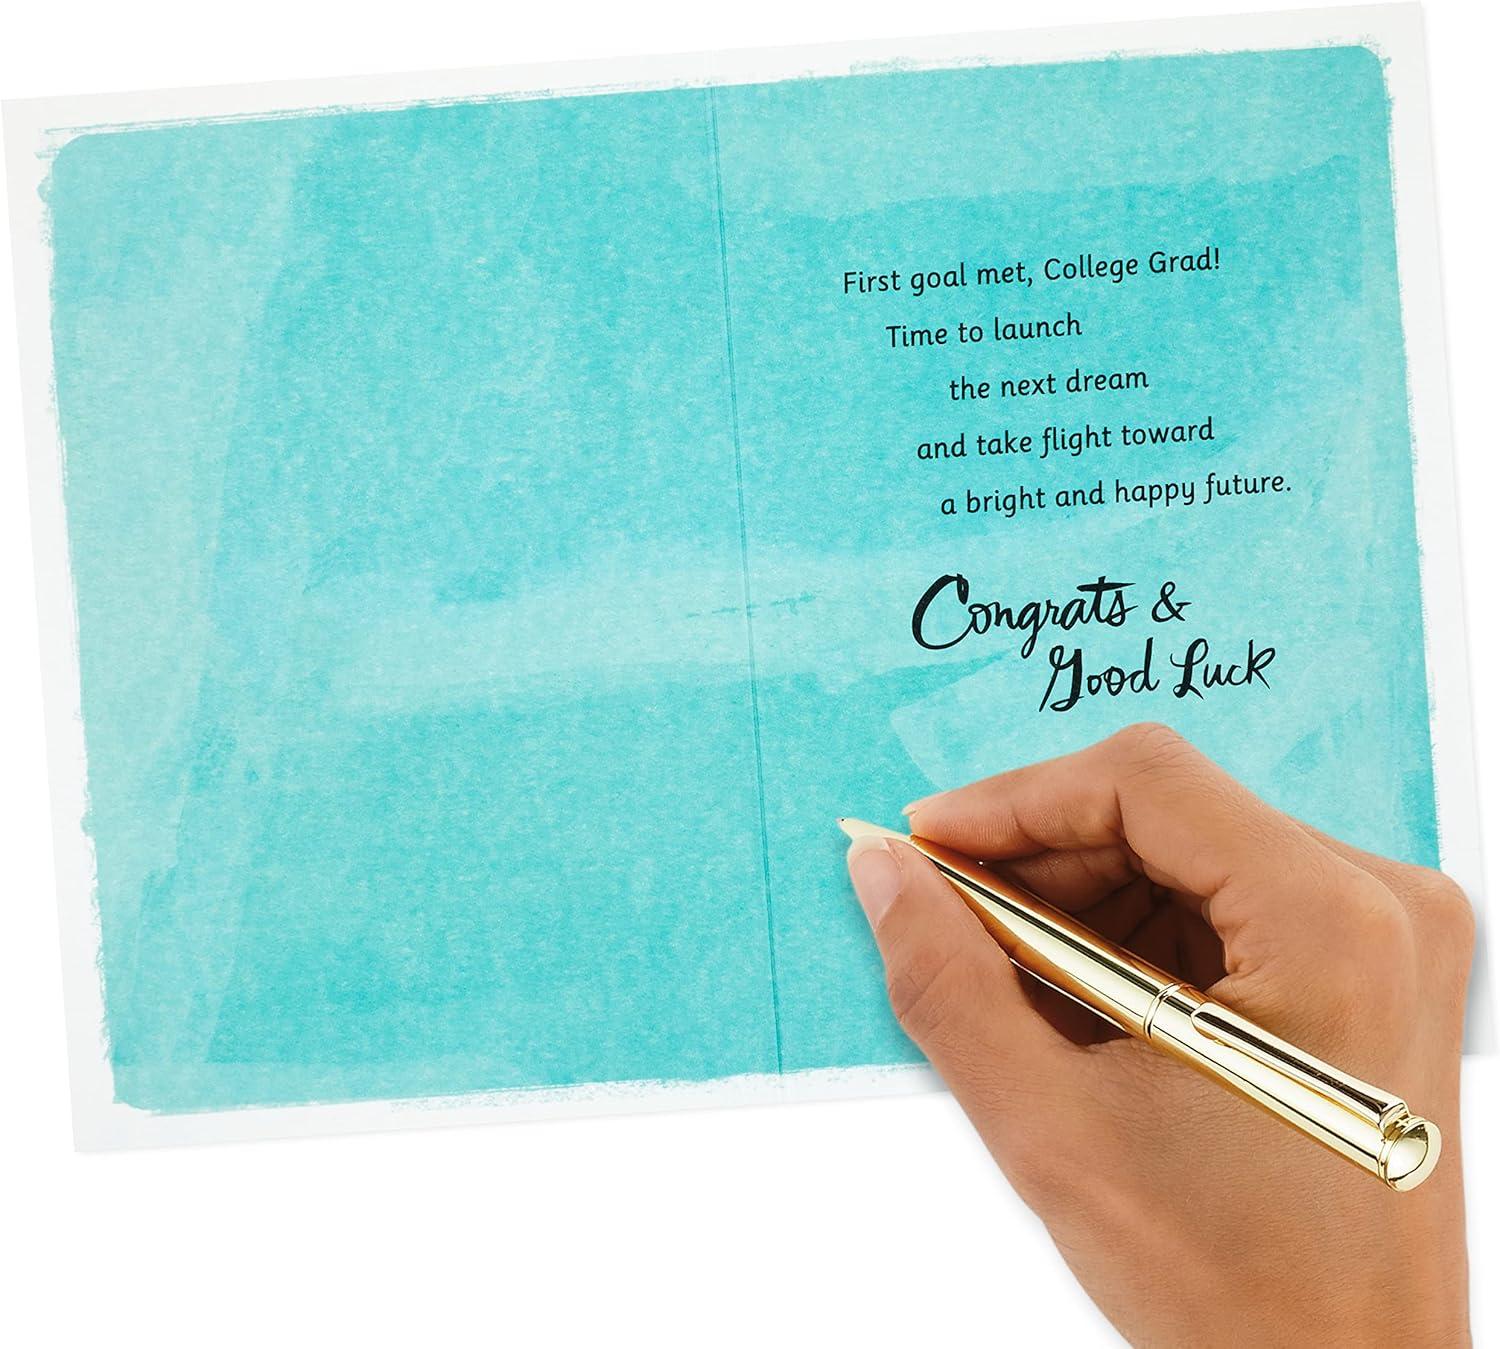 First goal met, College Grad!
Time to launch
the next dream
and take flight toward
a bright and happy future.
Congrats &
Good Luck